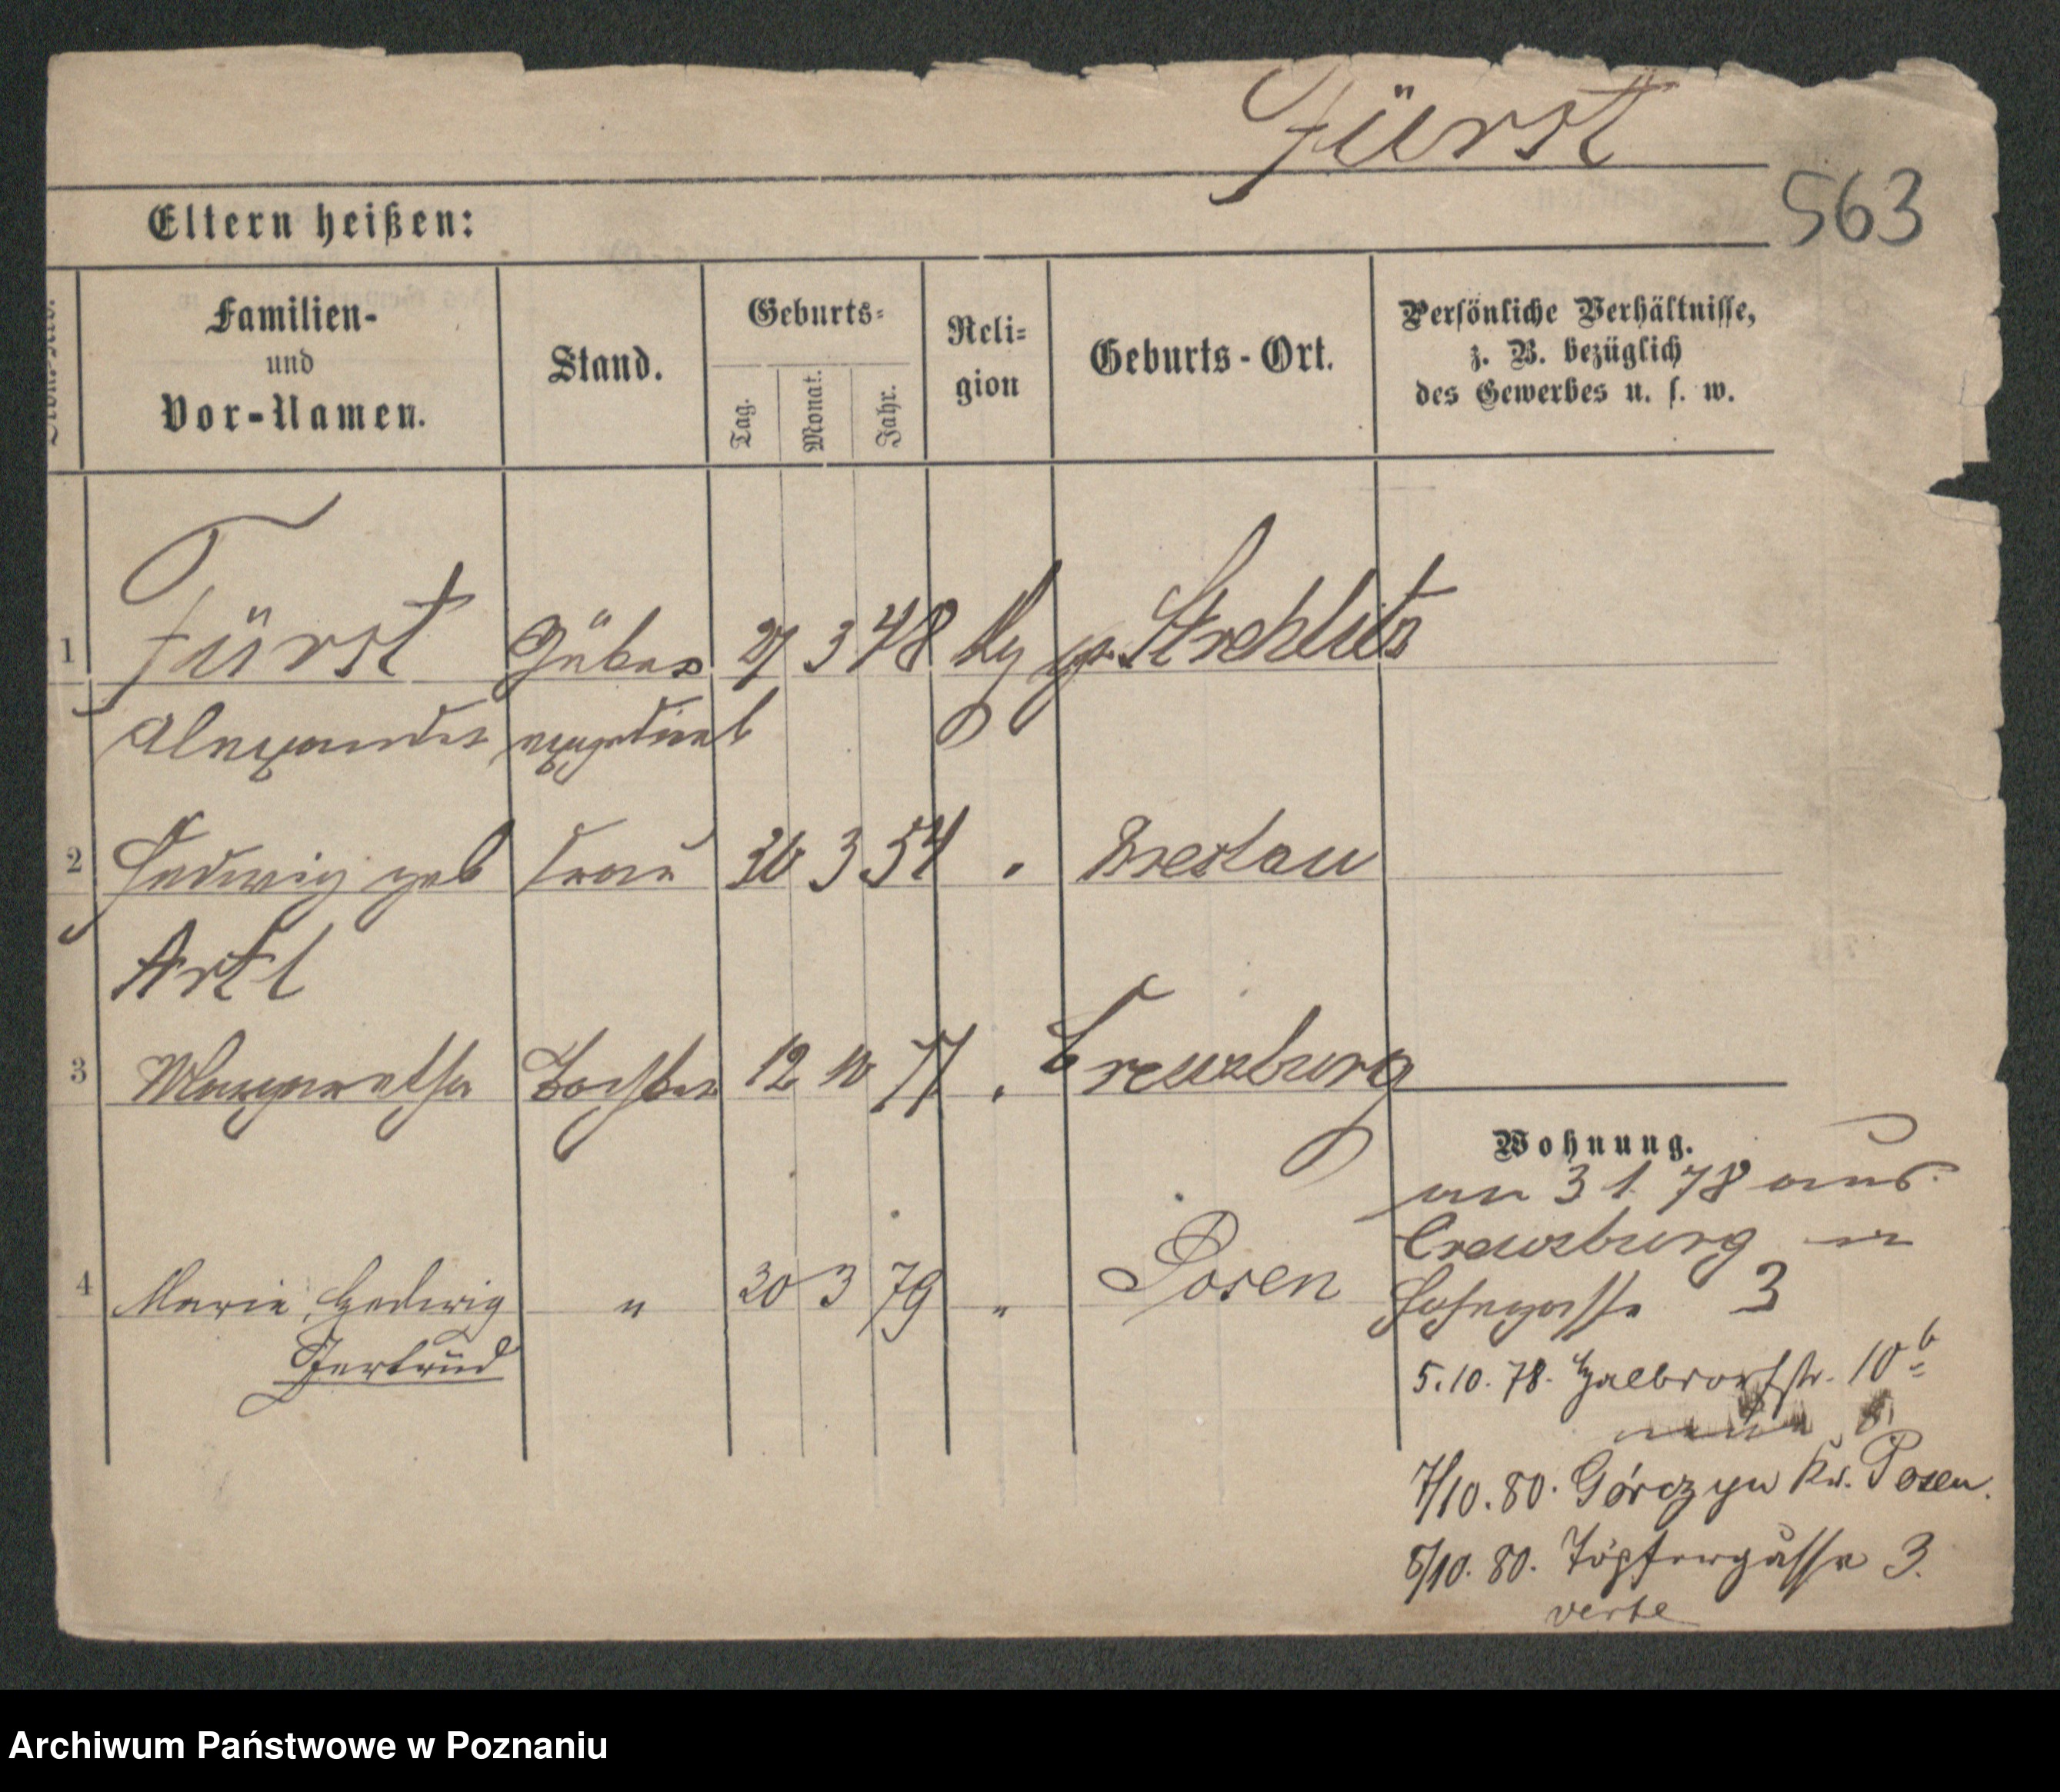 Fürst
563
Eltern heißen:
Familien-
und
Vor-Namen.
Stand.
Geburts-
Tag.
Monat.
Jahr.
Reli-
gion
Geburts-Ort.
Persönliche Verhältnisse,
z. B. bezüglich
des Gewerbes u. s. w.
1 Fürst Güter 27 3 48 gr. Strehlitz
Alexander expedient
2 Hedwig geb Frau 30 3 54 " Breslau
Artl
3 Margaretha Tochter 12 10 77 " Creuzburg
4 Marie Hedwig " 20 3 79 " Posen
Gertrud
Wohnung.
an 3 1 78 aus
Creuzburg in
3
5.10.78. Halbdorfstr. 10b
7/10.80. Górczyn Kr. Posen.
8/10.80. Töpfergasse 3.
verte
Archiwum Państwowe w Poznaniu